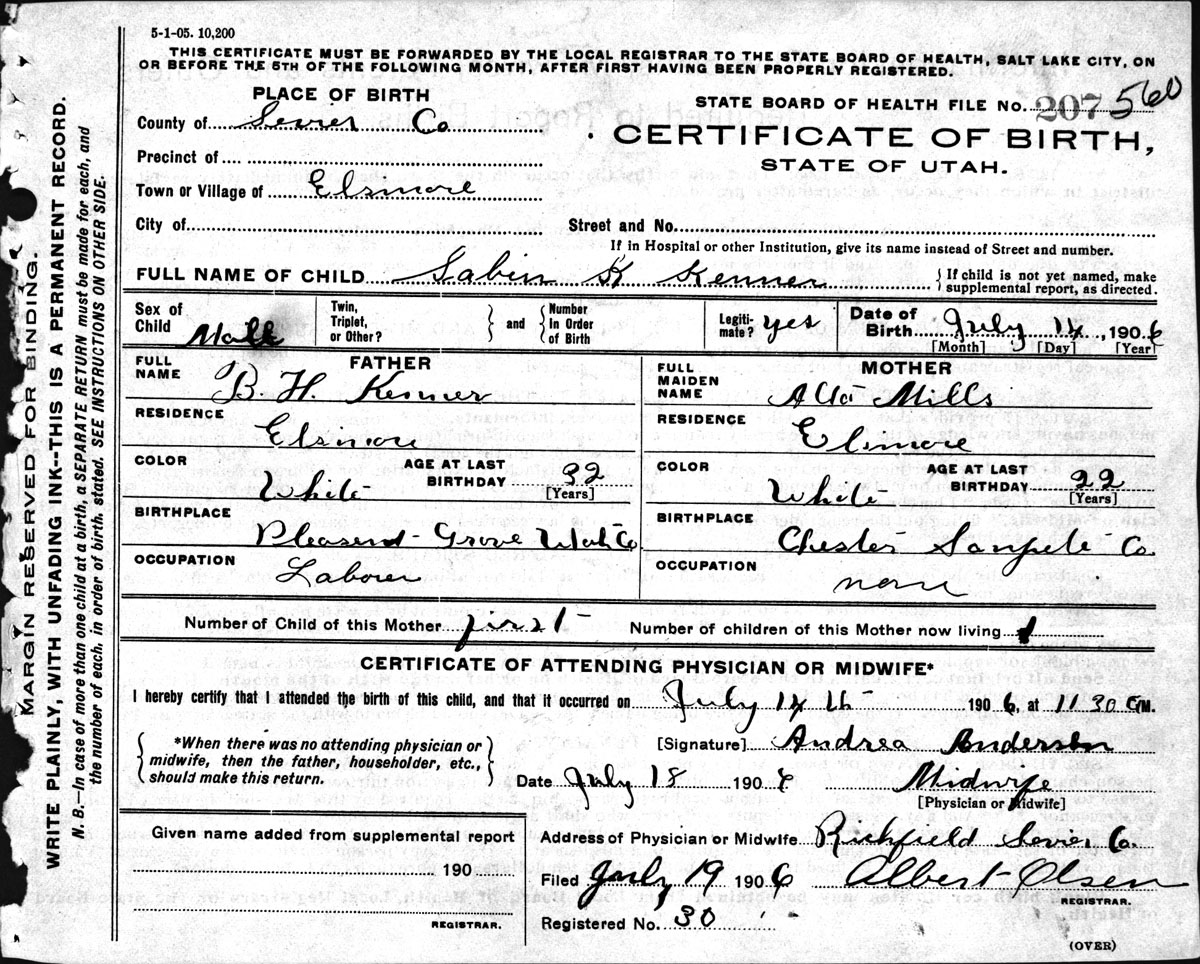 5-1-05. 10,200
THIS CERTIFICATE MUST BE FORWARDED BY THE LOCAL REGISTRAR TO THE STATE BOARD OF HEALTH, SALT LAKE CITY, ON
OR BEFORE THE 5TH OF THE FOLLOWING MONTH, AFTER FIRST HAVING BEEN PROPERLY REGISTERED.
PLACE OF BIRTH
STATE BOARD OF HEALTH FILE NO. 207 560
County of Sevier Co
CERTIFICATE OF BIRTH,
STATE OF UTAH.
Precinct of
Town or Village of Elsmore
City of
Street and No.
If in Hospital or other Institution, give its name instead of Street and number.
FULL NAME OF CHILD Sabin K Kenner
If child is not yet named, make
supplemental report, as directed.
Sex of
Child Male
Twin,
Triplet,
or Other?
and
Number
In Order
of Birth
Legiti-
mate? yes
Date of
Birth July 14, 1906
[Month] [Day] [Year]
FATHER
FULL
NAME B. H. Kenner
RESIDENCE
Elsmore
COLOR
White
AGE AT LAST
BIRTHDAY 32
[Years]
BIRTHPLACE
Pleasend Grove Utah Co
OCCUPATION
Laborer
MOTHER
FULL
MAIDEN
NAME Alta Mills
RESIDENCE
Elsmore
COLOR
White
AGE AT LAST
BIRTHDAY 22
[Years]
BIRTHPLACE
Chester Sanpete Co.
OCCUPATION
none
Number of Child of this Mother first
Number of children of this Mother now living 1
CERTIFICATE OF ATTENDING PHYSICIAN OR MIDWIFE*
I hereby certify that I attended the birth of this child, and that it occurred on July 14 th 1906, at 11 30 M.
*When there was no attending physician or
midwife, then the father, householder, etc.,
should make this return.
[Signature] Andrea Andersen
Date July 18 1906
Midwife
[Physician or Midwife]
Given name added from supplemental report
190
REGISTRAR.
Address of Physician or Midwife Richfield Sevier Co.
Filed July 19 1906
Albert Olsen
REGISTRAR.
Registered No. 30
(OVER)
MARGIN RESERVED FOR BINDING.
WRITE PLAINLY, WITH UNFADING INK--THIS IS A PERMANENT RECORD.
N. B.—In case of more than one child at a birth, a SEPARATE RETURN must be made for each, and
the number of each, in order of birth, stated. SEE INSTRUCTIONS ON OTHER SIDE.